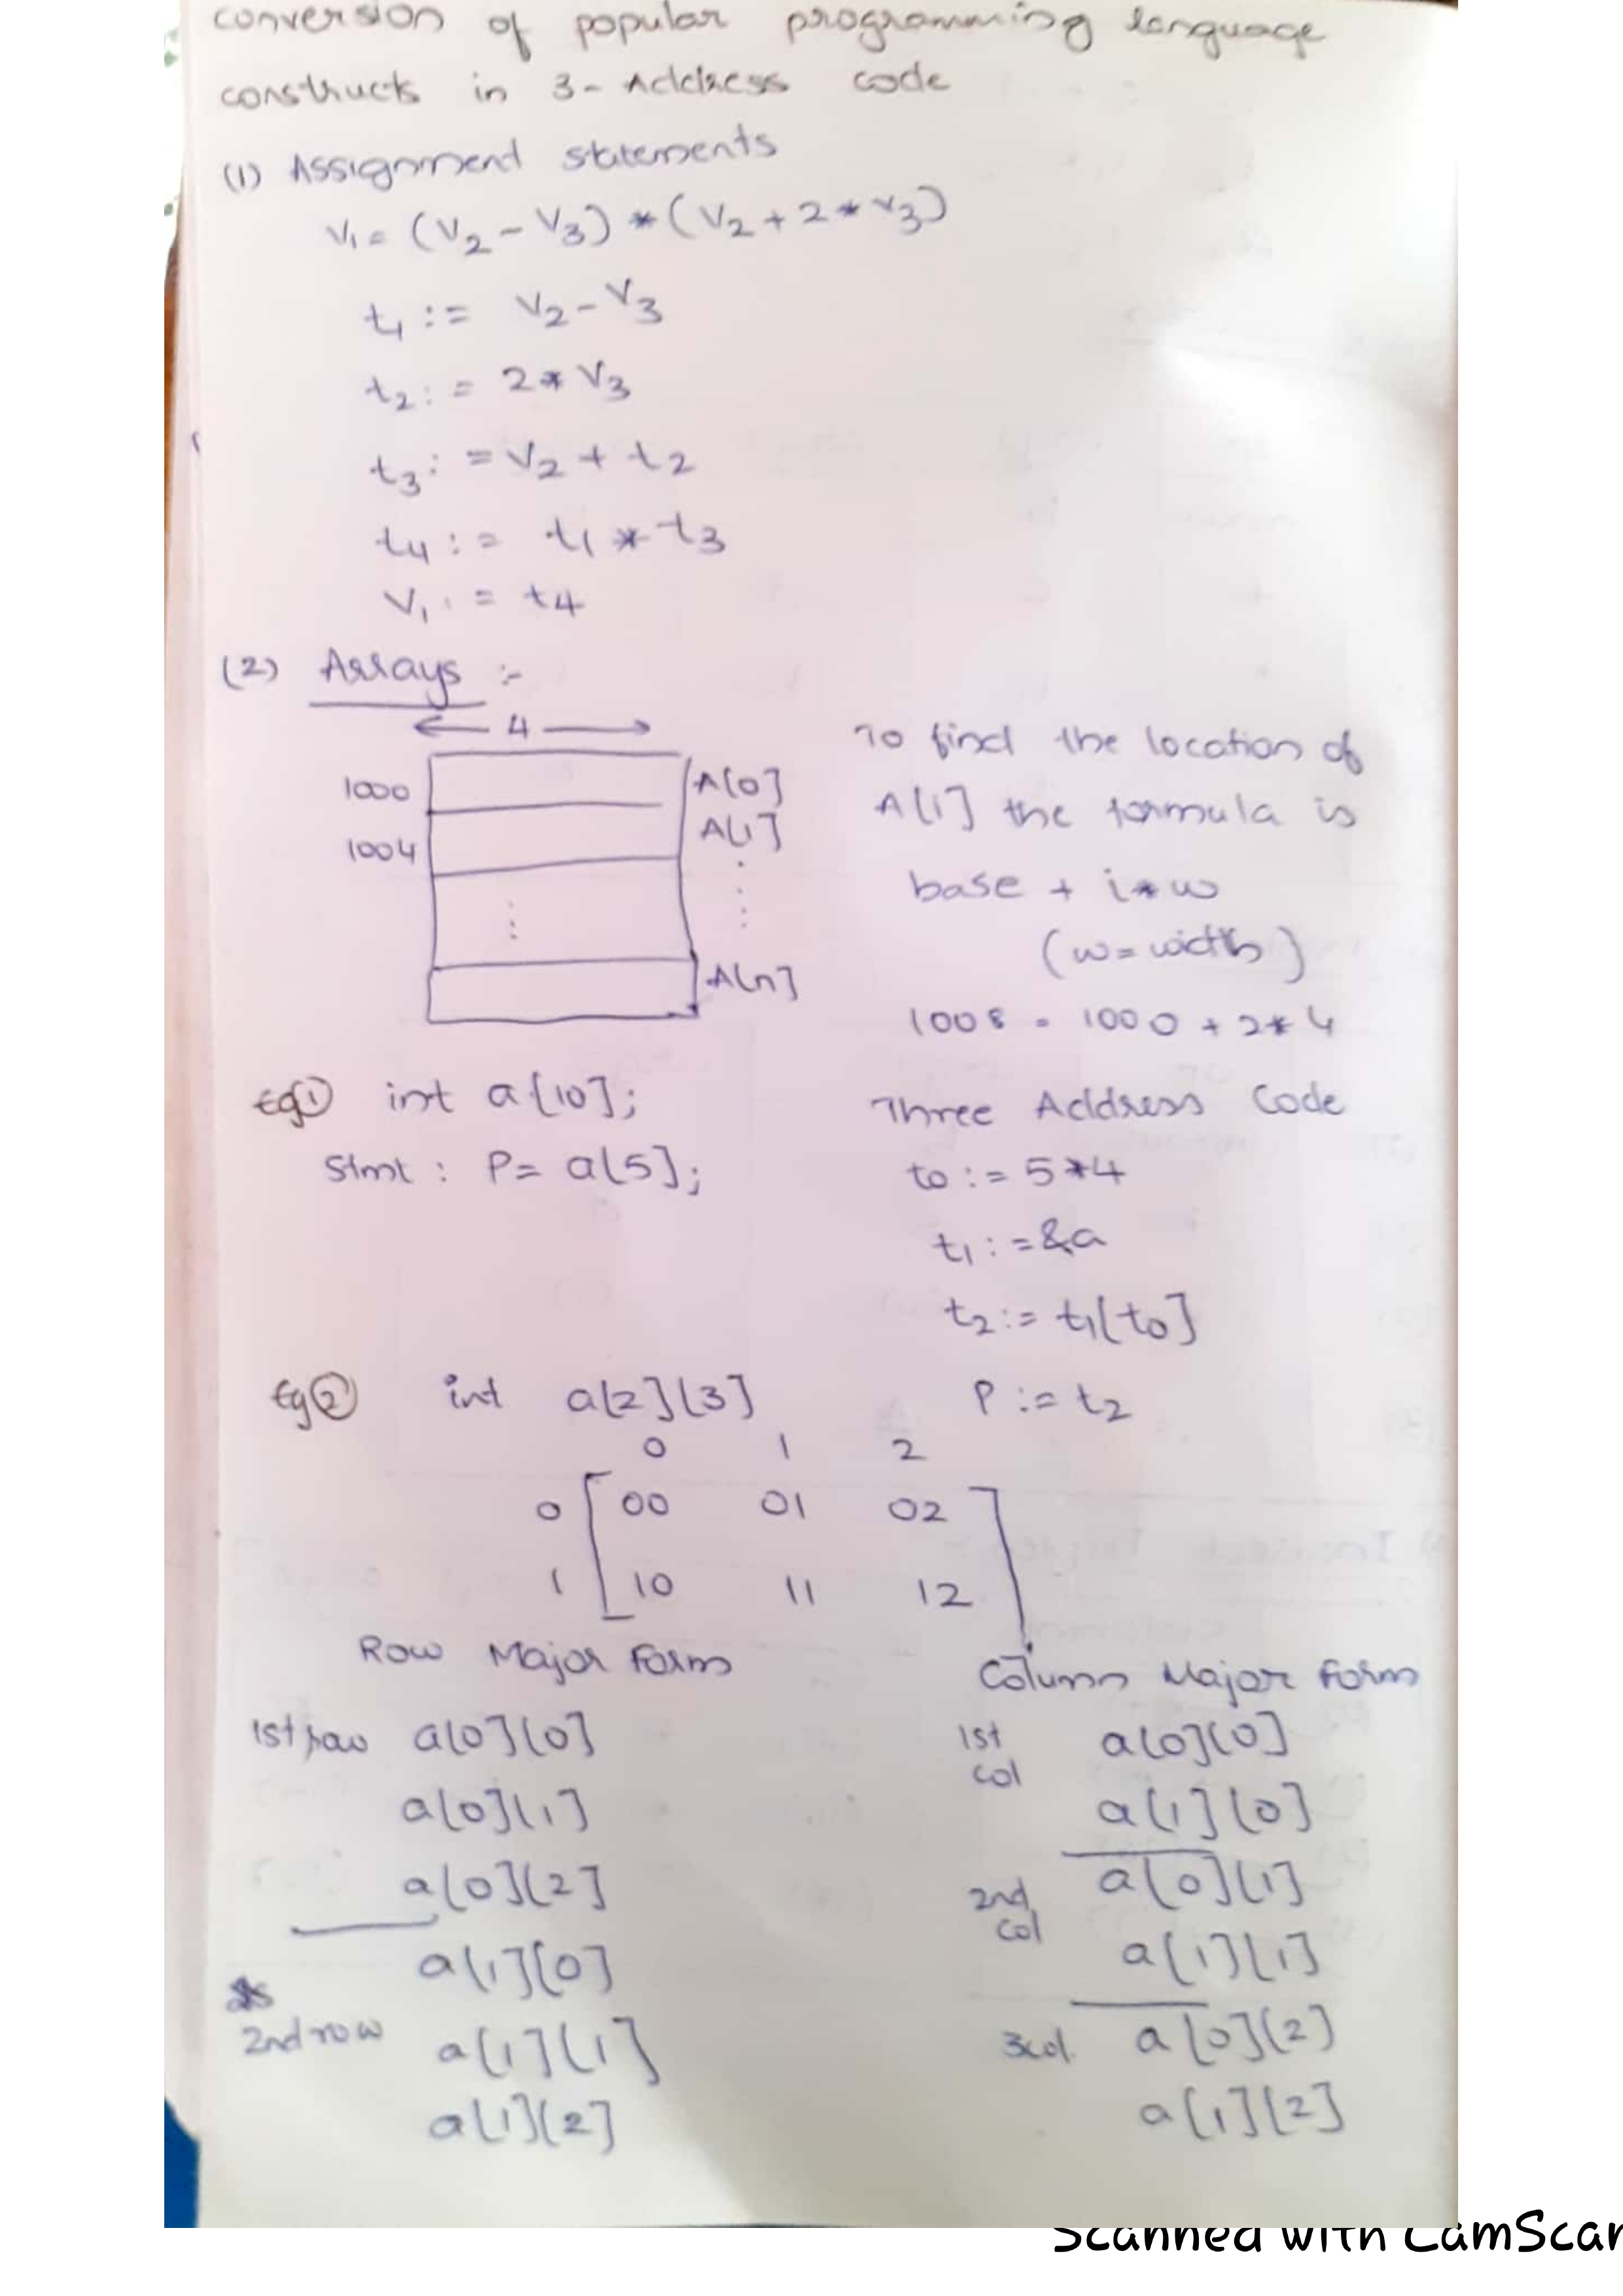 conversion of popular programming language
constructs in 3-Address code
(1) Assignment statements
V1 = (V2 - V3) * (V2 + 2 * V3)
t1 := V2 - V3
t2 := 2 * V3
t3 := V2 + t2
t4 := t1 * t3
V1 := t4
(2) Arrays :-
4
1000
A[0]
1004
A[1]
A[n]
To find the location of
A[i] the formula is
base + i * w
(w = width)
1008 = 1000 + 2 * 4
Eg① int a[10];
Stmt : P = a[5];
Three Address Code
t0 := 5 * 4
t1 := &a
t2 := t1[t0]
P := t2
Eg② int a[2][3]
0 1 2
0 00 01 02
1 10 11 12
Row Major Form
1st row a[0][0]
a[0][1]
a[0][2]
a[1][0]
2nd row a[1][1]
a[1][2]
Column Major Form
1st col a[0][0]
a[1][0]
2nd col a[0][1]
a[1][1]
3col a[0][2]
a[1][2]
Scanned with CamScan